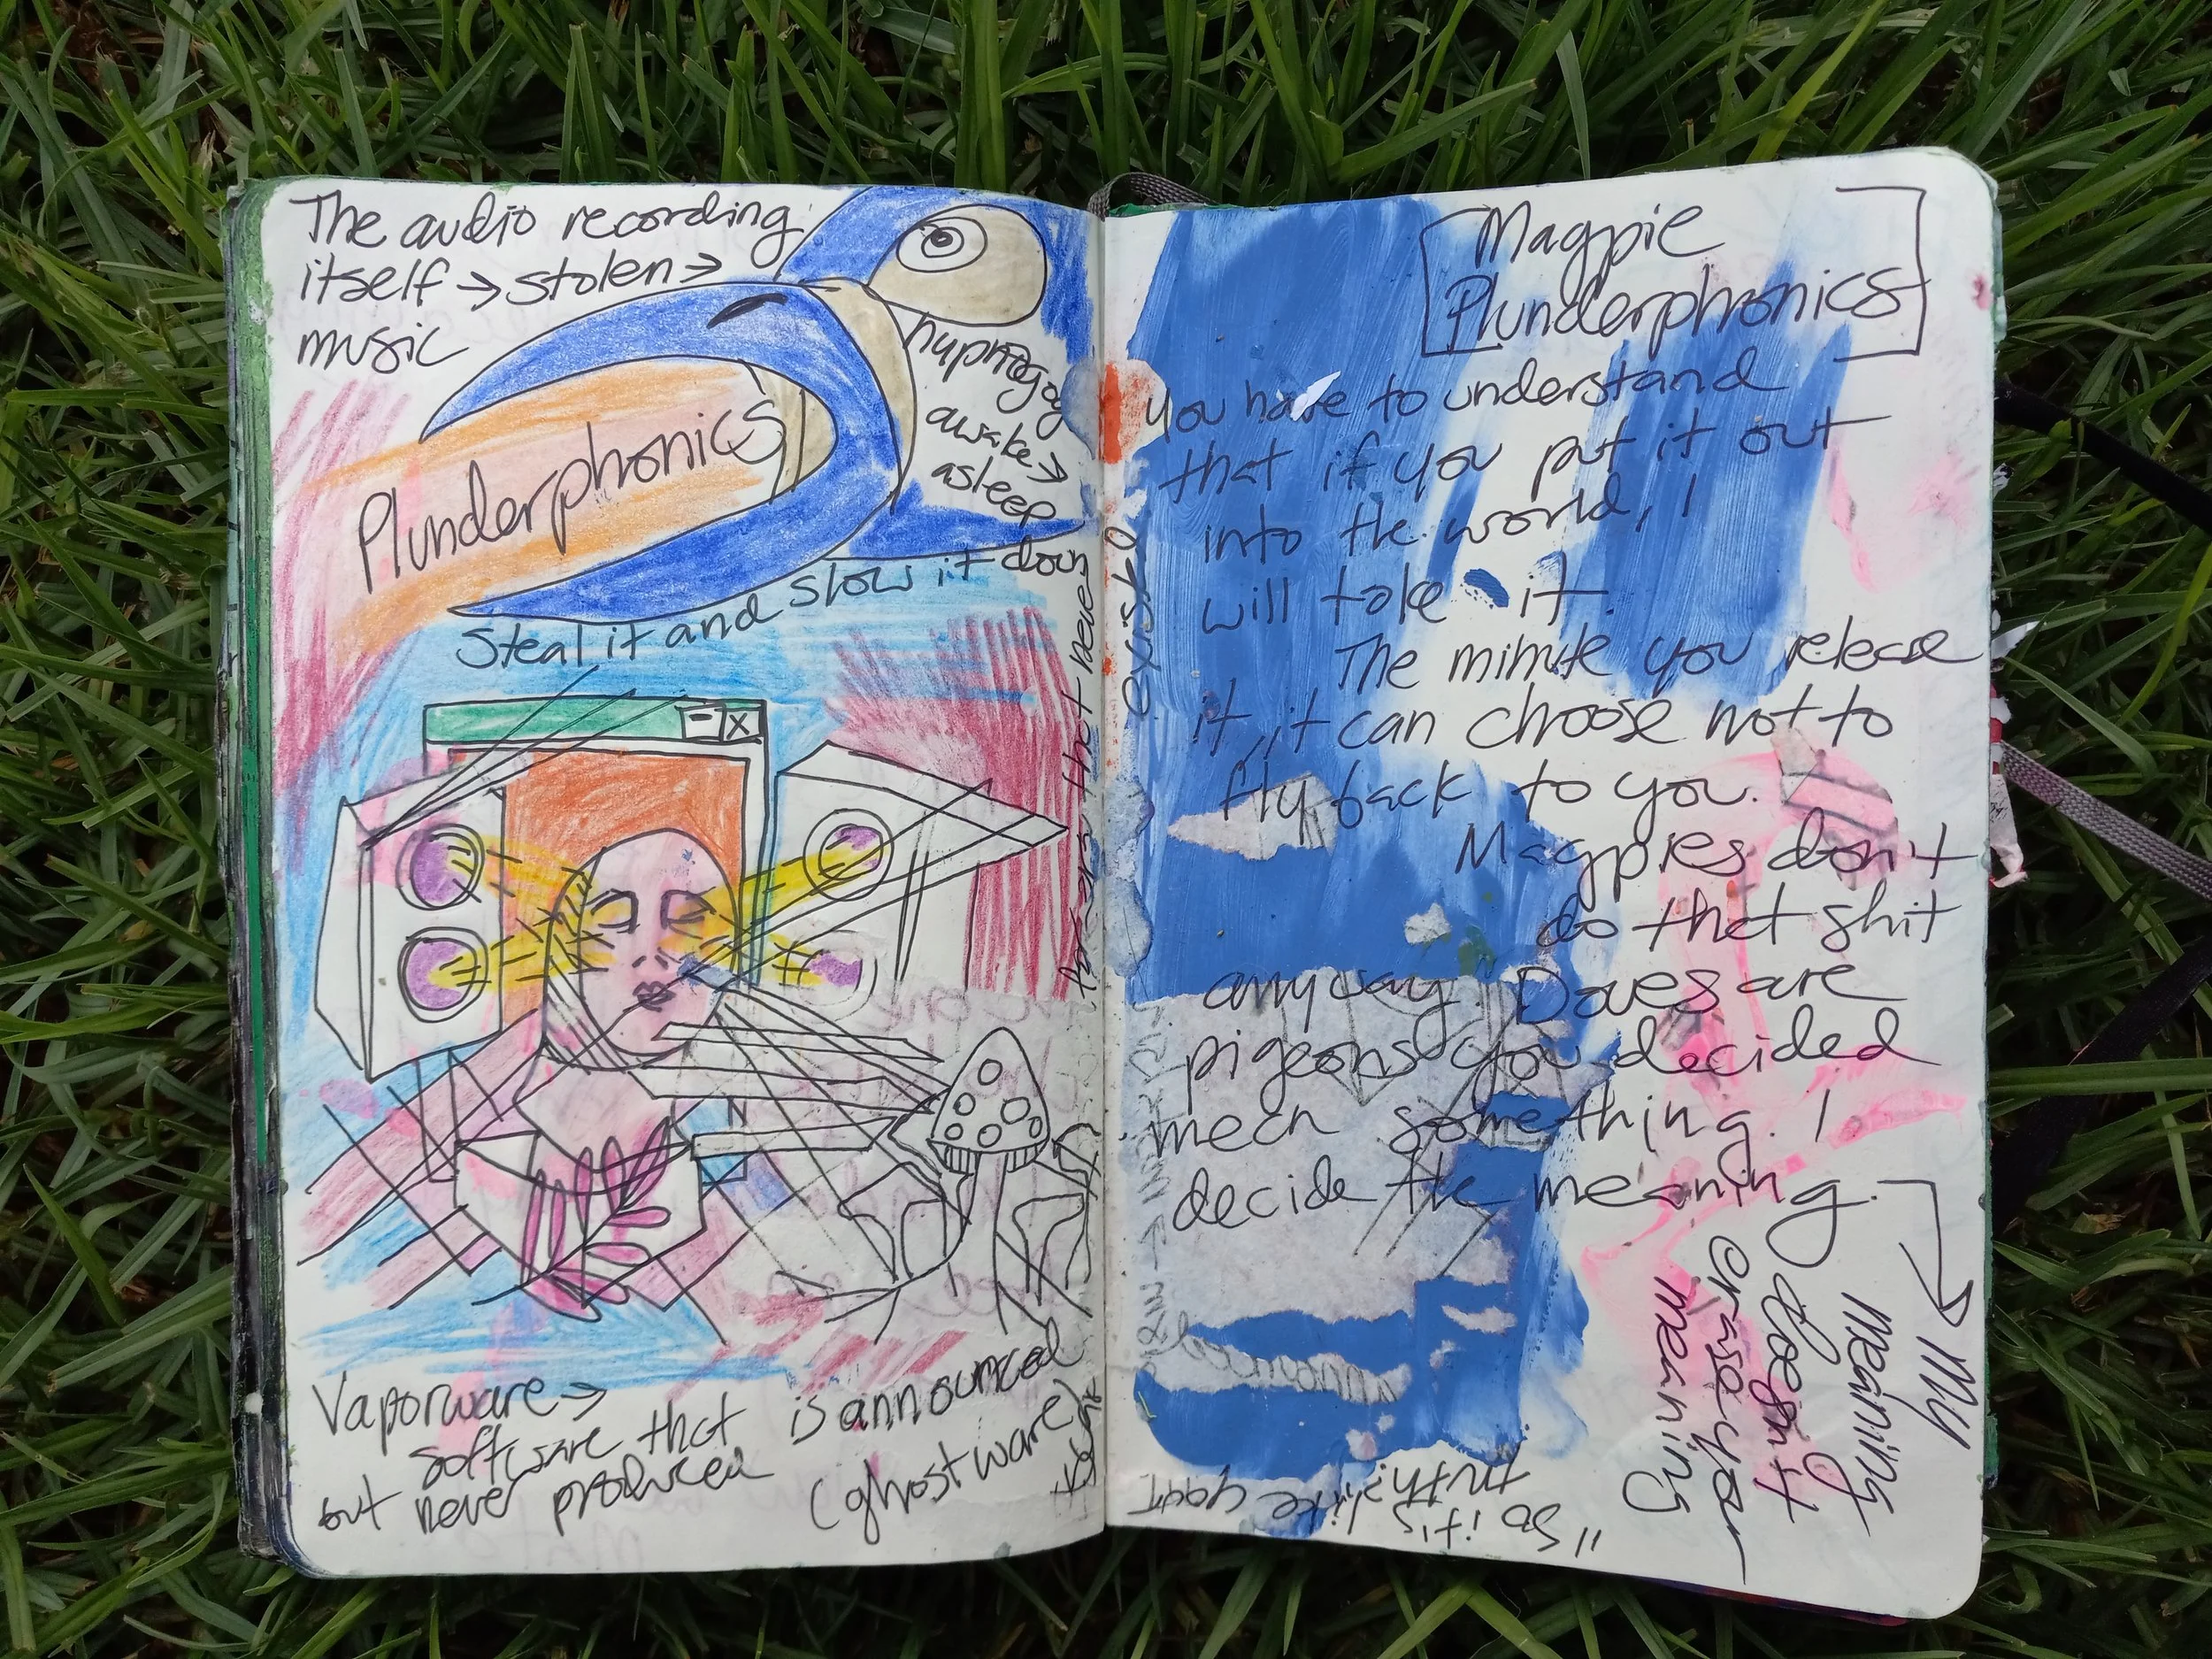 The audio recording
itself → stolen →
music
hypnogog
awake →
asleep
Plunderphonics
Steal it and slow it down
- X
N
that never
existed
Vaporware →
software that is announced
but never produced (ghostware)
[Magpie
Plunderphonics]
You have to understand
that if you put it out
into the world, I
will take it.
The minute you release
it, it can choose not to
fly back to you.
Magpies don't
do that shit
anyway. Doves are
pigeons you decided
mean something. I
decide the meaning.
My
meaning
doesn't
erase your
meaning
"So it's like
truth?